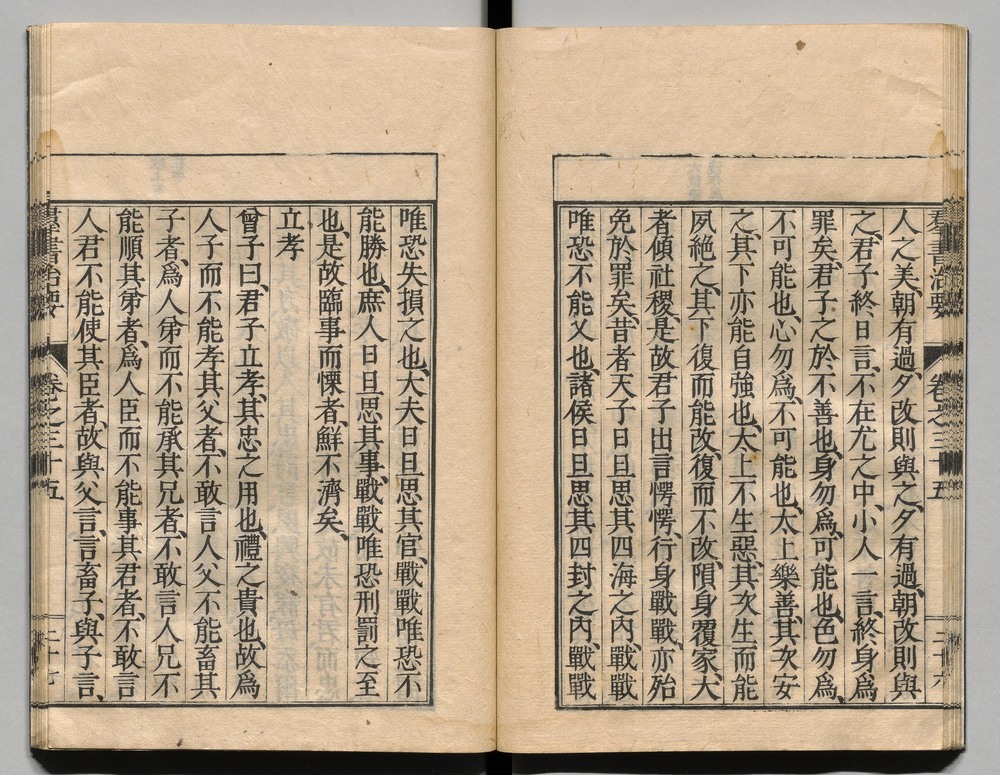 羣書治要 卷之三十五 二十六
人之美、朝有過、夕改則與之、夕有過、朝改則與
之、君子終日言、不在尤之中、小人一言、終身爲
罪矣、君子之於不善也、身勿爲、可能也、色勿爲、
不可能也、心勿爲、不可能也、太上樂善、其次安
之、其下亦能自強也、太上不生惡、其次生而能
夙絕之、其下復而能改、復而不改、隕身覆家、大
者傾社稷、是故君子出言愕愕、行身戰戰、亦殆
免於罪矣、昔者天子日旦思其四海之內、戰戰
唯恐不能乂也、諸侯日旦思其四封之內、戰戰
唯恐失損之也、大夫日旦思其官、戰戰唯恐不
能勝也、庶人日旦思其事、戰戰唯恐刑罰之至
也、是故臨事而慄者、鮮不濟矣、
立孝
曾子曰、君子立孝、其忠之用也、禮之貴也、故爲
人子而不能孝其父者、不敢言人父不能畜其
子者、爲人弟而不能承其兄者、不敢言人兄不
能順其弟者、爲人臣而不能事其君者、不敢言
人君不能使其臣者、故與父言、言畜子、與子言、
羣書治要 卷之三十五 二十七